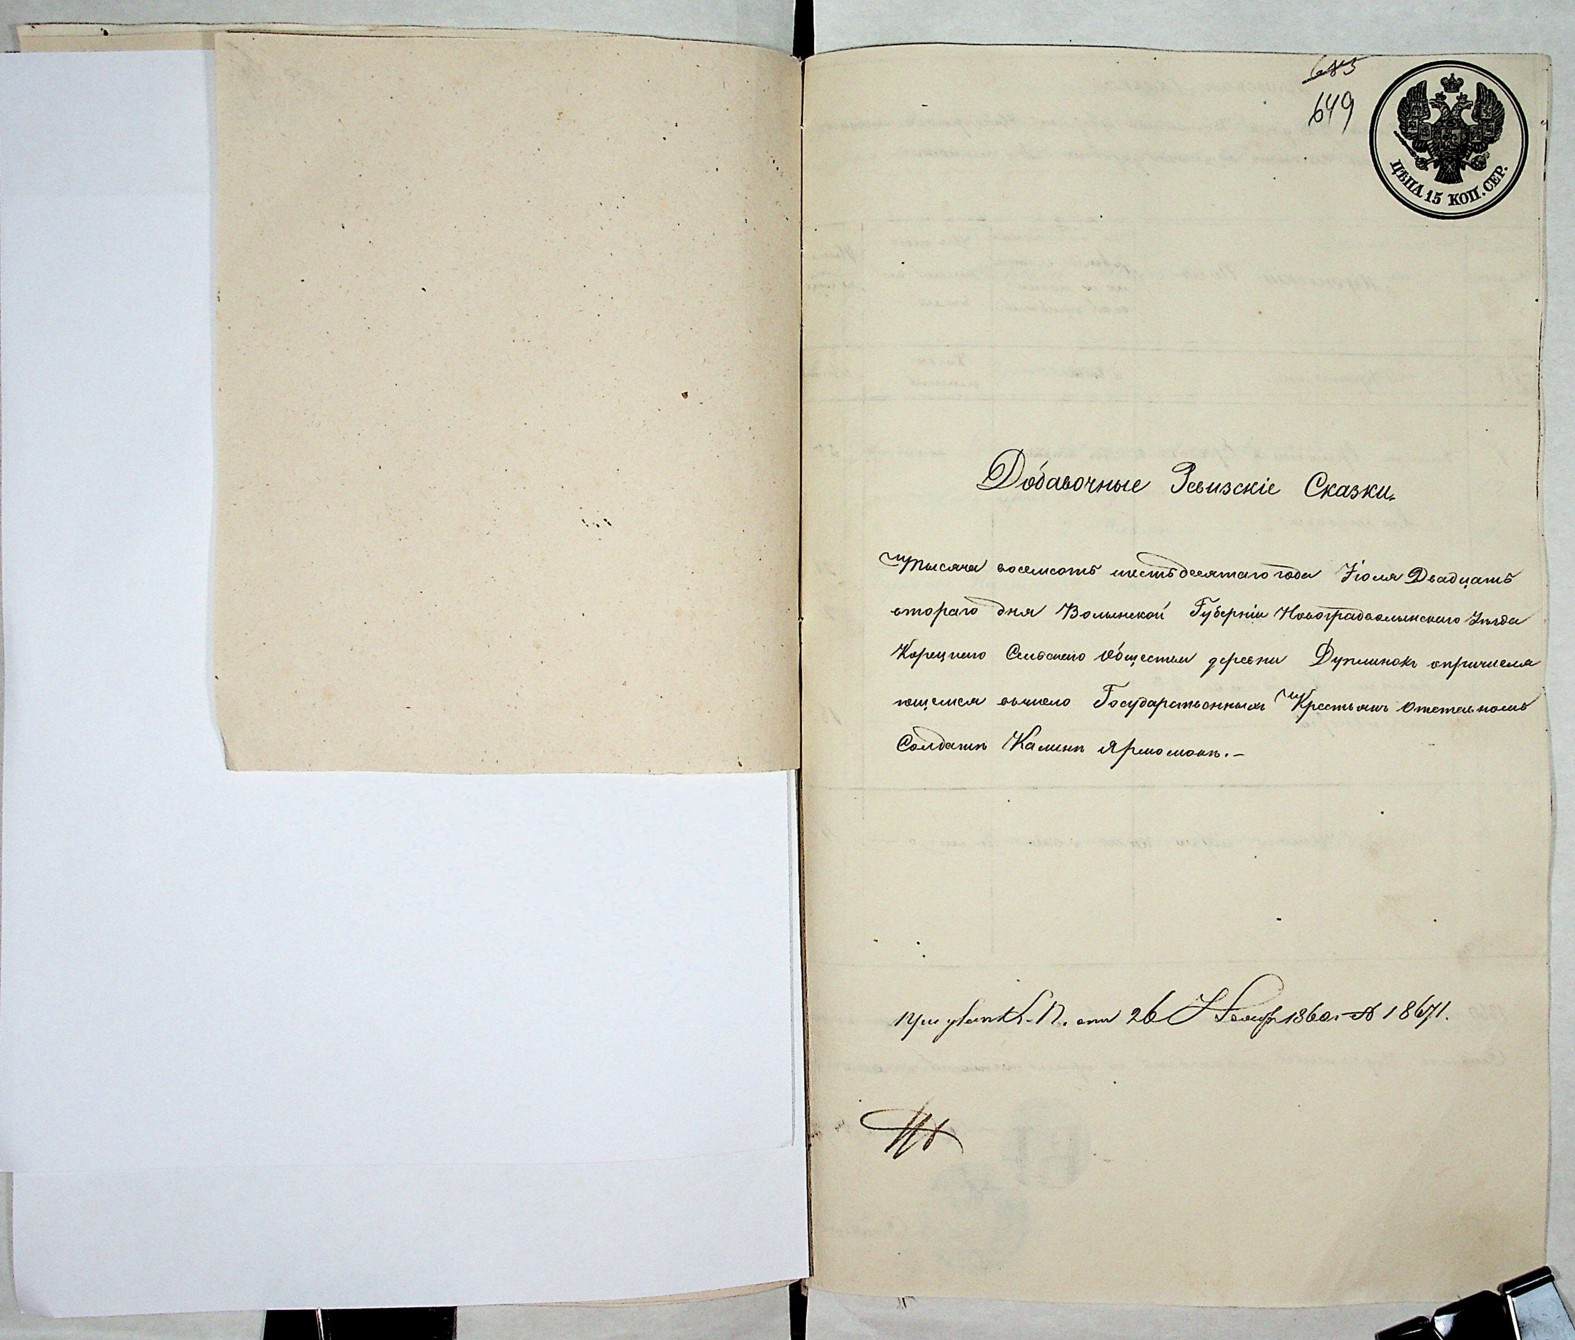 685
649
ЦѢНА 15 КОП. СЕР.
Добавочные Ревизскіе Сказки.
Тысяча восемсотъ шестьдесятаго года Іюля Двадцать
втораго дня Волынской Губерніи Новоградволынскаго Уѣзда
Корецкаго Сельскаго Общества деревни Дуплинокъ опричисля
ющемся вчисло Государственныхъ Крестьянъ Отставномъ
Солдатѣ Калинѣ Ярмолюкѣ.-
При указѣ К. П. отъ 26 Ноябр 1860 г № 18671.